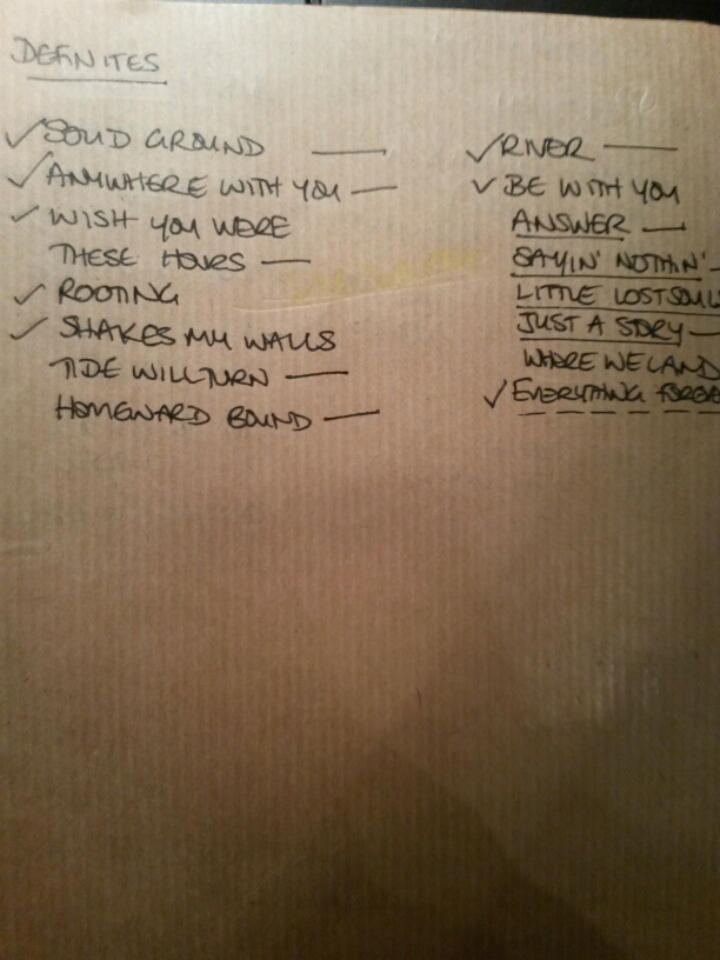 DEFINITES
✓ SOLID GROUND —
✓ ANYWHERE WITH YOU —
✓ WISH YOU WERE
THESE HOURS —
✓ ROOTING
✓ SHAKES MY WALLS
TIDE WILL TURN —
HOMEWARD BOUND —
✓ RIVER —
✓ BE WITH YOU
ANSWER —
SAYIN' NOTHIN' —
LITTLE LOST SOUL
JUST A STORY —
WHERE WE LAND
✓ EVERYTHING